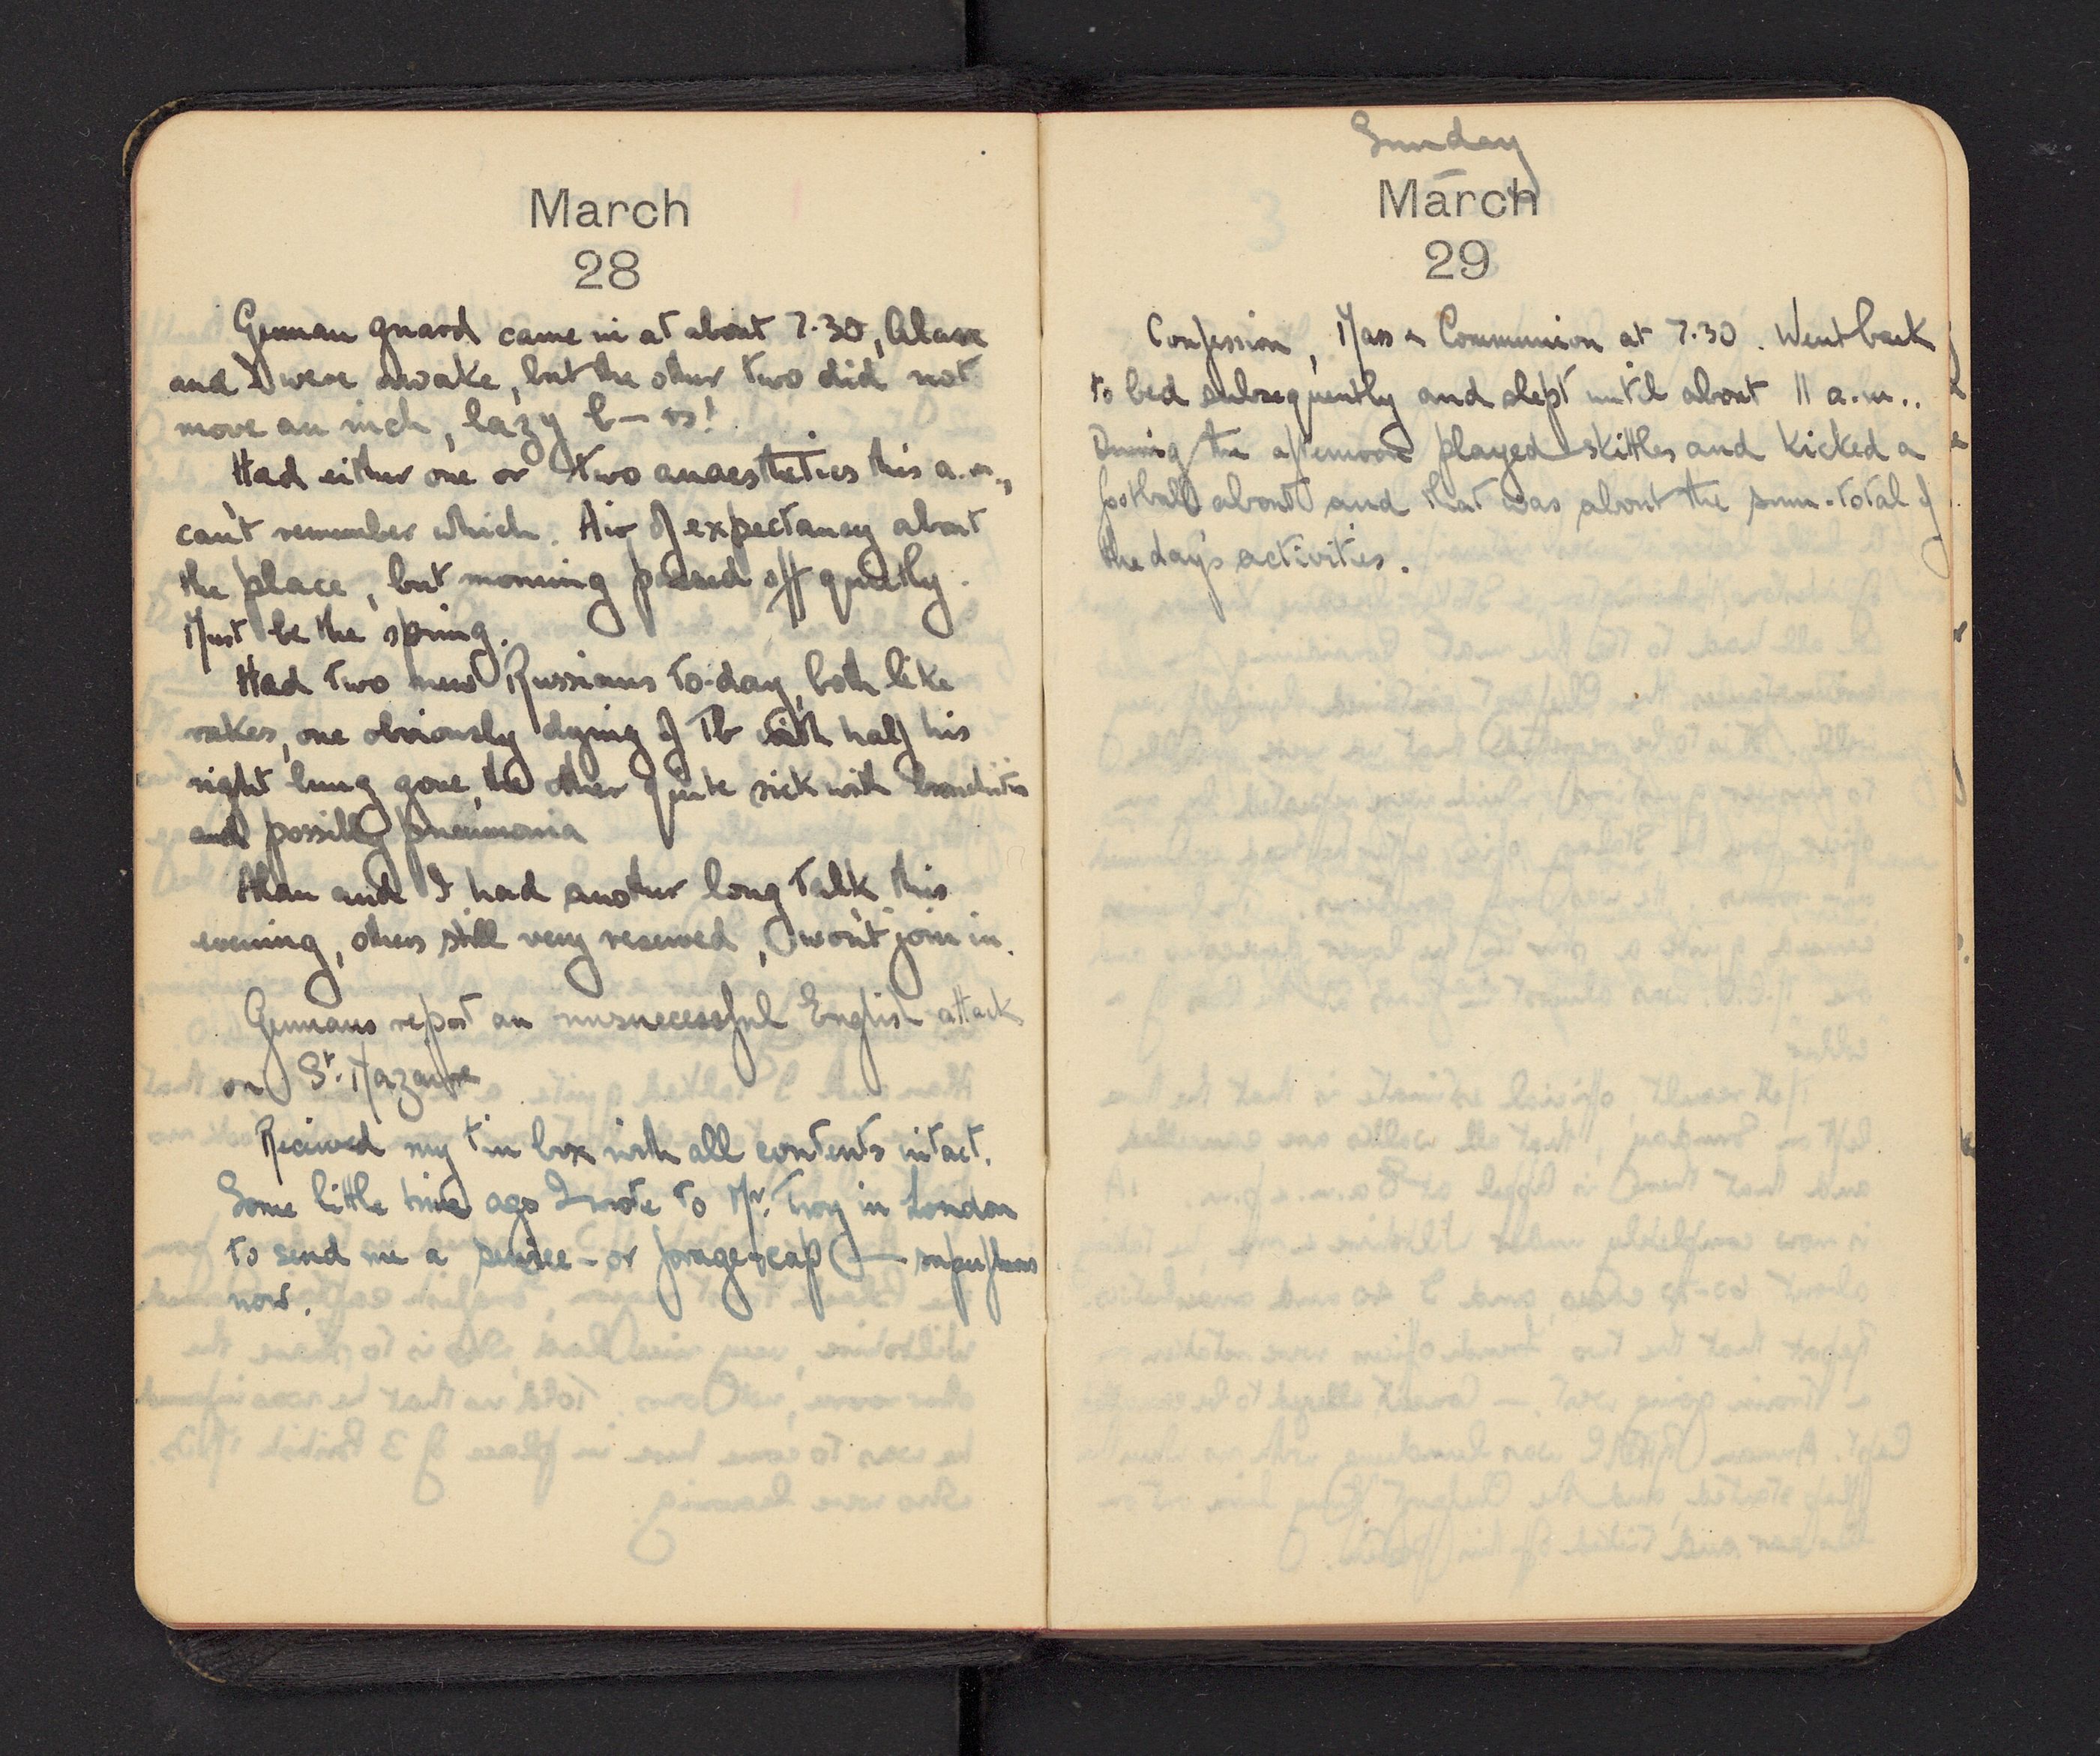 March
28
German guard came in at about 7.30, Alan
and I were awake, but the other two did not
move an inch, lazy b—rs!
Had either one or two anaesthetics this a.m.,
can't remember which. Air of expectancy about
the place, but morning passed off quietly.
Must be the spring.
Had two new Russians to-day, both like
rakes, one obviously dying of Tb with half his
right lung gone, the other quite sick with bronchitis
and possibly pneumonia
Alan and I had another long talk this
evening, others still very reserved, won't join in.
Germans report an unsuccessful English attack
on St. Nazaire
Received my tin box with all contents intact.
Some little time ago I wrote to Mr. Troy in London
to send me a service- or forage-cap — superfluous
now.
Sunday
March
29
Confession, Mass & Communion at 7.30. Went back
to bed subsequently and slept until about 11 a.m..
During the afternoon played skittles and kicked a
football about and that was about the sum-total of
the day's activities.